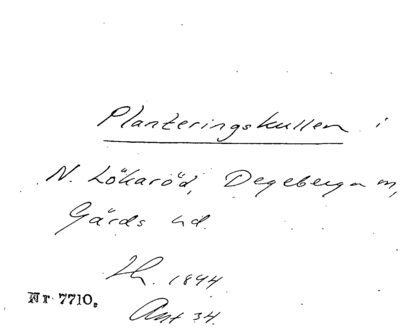 Planteringskullen i
N. Lökaröd, Degeberga sn,
Gärds hd.
Th. 1844
Nr 7710.
Ant 34.